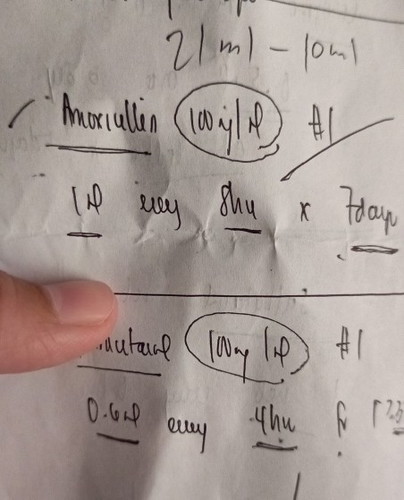 21ml - 10ml
Amoxicillin 100mg/ml #1
1ml every 8hrs x 7days
100mg/ml #1
0.6ml every 4hrs